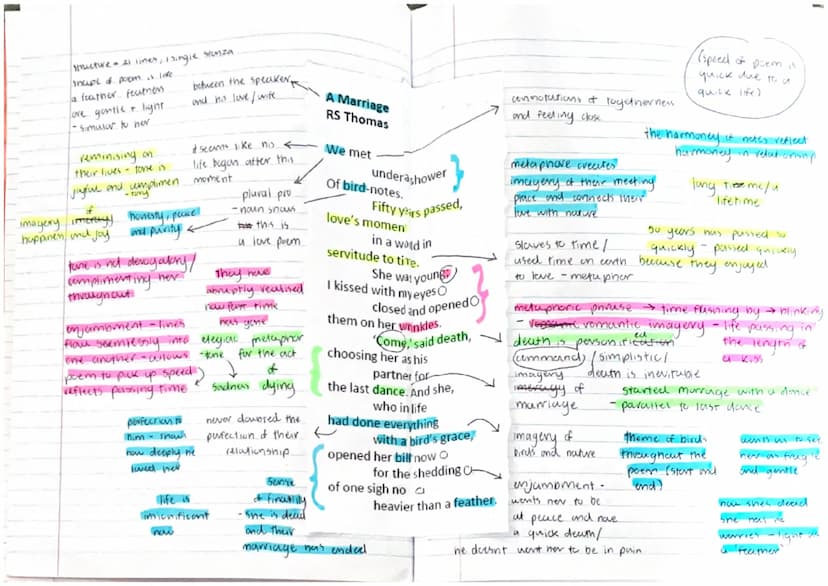 structure = 21 lines, 1 single stanza
shape of poem is like
a feather. feathers
are gentle + light
- similar to her
between the speaker
and his love/wife
reminising on
their lives - tone is
joyful and complimen
-tary
it seems like his
life began after this
moment
plural pro
-noun shows
this is
a love poem
imagery of
happiness and joy
honesty, peace
and purity
tone is not derogatory/
complimenting her
throughout
They have
abruptly realised
how fast time
has gone
enjambment - lines
flow seamlessly into
one another - allows
poem to pick up speed
reflects passing time
elegiac
tone
sadness
metaphor
for the act
of
dying
perfection to
him - shows
how deeply he
loved her
never doubted the
perfection of their
relationship
life is
insignificant
now
sense
of finality
- she is dead
and their
marriage has ended
A Marriage
RS Thomas
We met
under a shower
Of bird-notes.
Fifty years passed,
love's momen
in a world in
servitude to time.
She was young
I kissed with my eyes
closed and opened
them on her wrinkles.
'Come,' said death,
choosing her as his
partner for
the last dance. And she,
who in life
had done everything
with a bird's grace,
opened her bill now
for the shedding
of one sigh no
heavier than a feather.
(speed of poem is
quick due to a
quick life)
connotations of togetherness
and feeling close
the harmoney of notes reflect
harmony in relationship
metaphore creates
imagery of their meeting
place and connects their
love with nature
long time/a
lifetime
slaves to time/
used time on earth
to love - metaphor
50 years has passed so
quickly - passed quickly
because they enjoyed
metaphoric phrase → time flashing by → blinking
- romantic imagery - life passing in
the length of
a kiss
death is personified
(command)/simplistic/
death is inevitable
imagery of
marriage
started marriage with a dance
- parallel to last dance
imagery of
birds and nature
theme of birds
throughout the
poem (start and
end)
her as fragile
and gentle
enjambment -
wants her to be
at peace and have
a quick death/
he doesnt want her to be in pain
now shes dead
she has no
worries - light as
a 'feather'